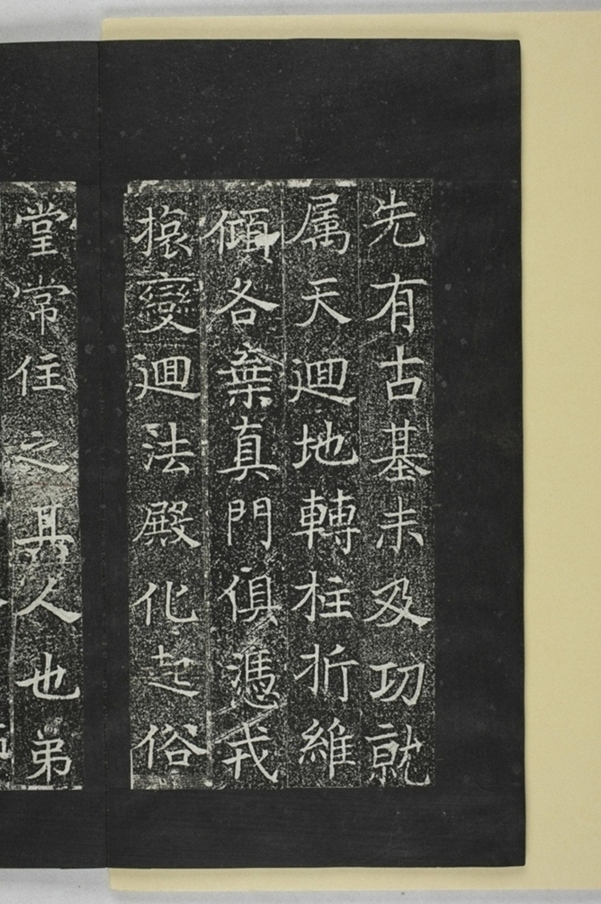 先有古基未及功就
属天迴地轉柱折維
傾各棄真門俱憑戎
變迴法殿化起俗
堂常住之具人也弟